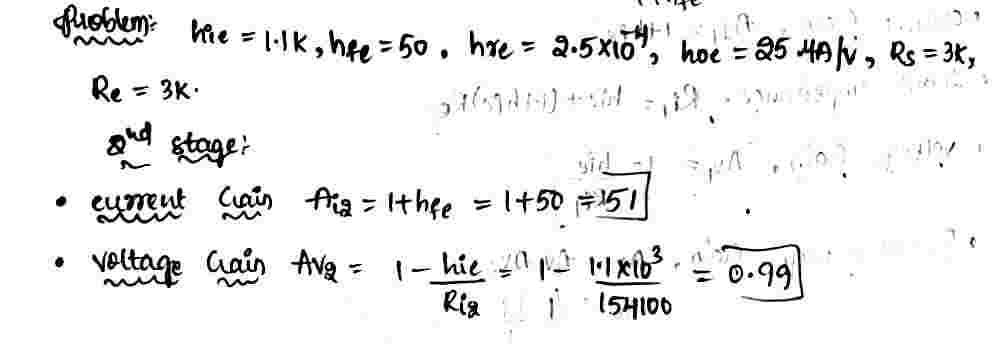 Problem:- hie = 1.1K, hfe = 50, hre = 2.5×10⁻⁴, hoe = 25 μA/V, Rs = 3K,
Re = 3K.
2nd stage:-
• current Gain Ai2 = 1+hfe = 1+50 = 51
• voltage Gain Av2 = 1 - hie/Ri2 = 1 - 1.1×10³/154100 = 0.99